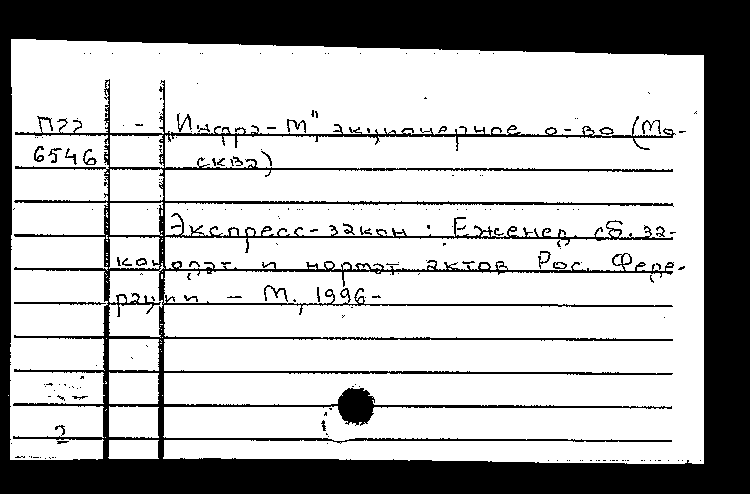 П22 - „Инфра-М", акционерное о-во (Мо-
6546 сква)
Экспресс-закон : Еженед. сб. за-
конодат. и нормат. актов Рос. Феде-
рации. - М., 1996-
2